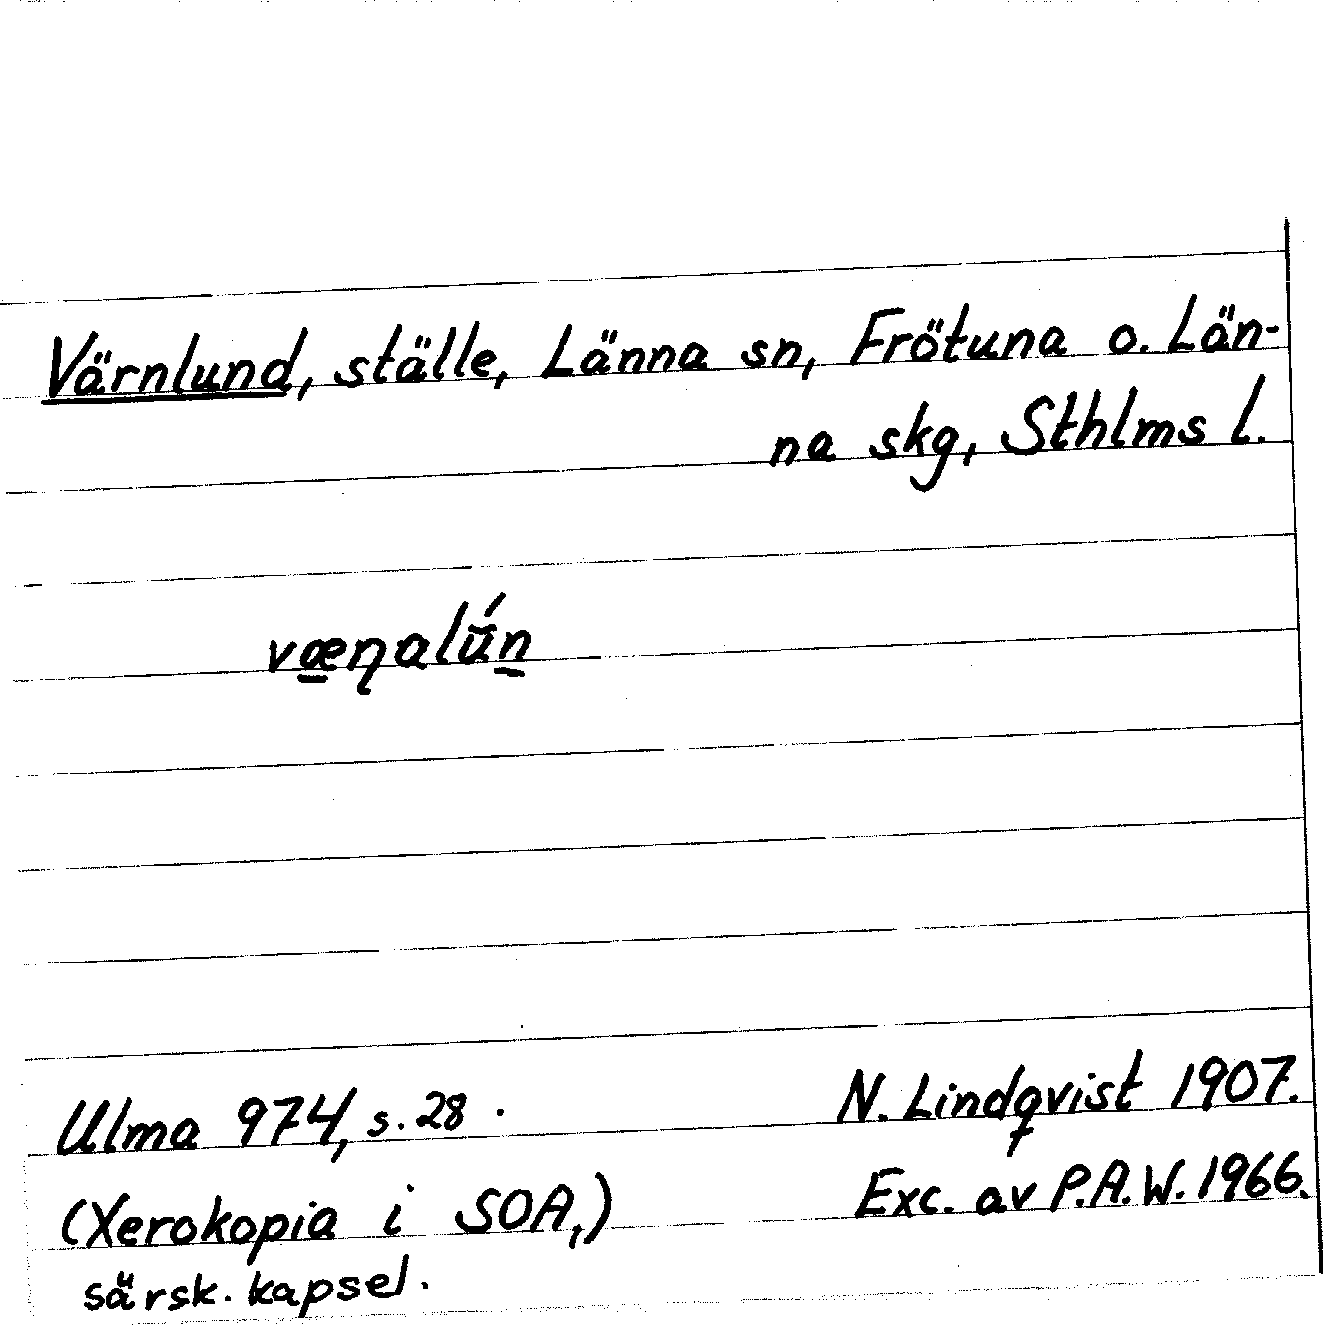 Värnlund, ställe, Länna sn, Frötuna o. Län-
na skg, Sthlms l.
væ̠ɳalú̆n̠
Ulma 974, s. 28. N. Lindqvist 1907.
(Xerokopia i SOA,) Exc. av P.A.W. 1966.
särsk. kapsel.